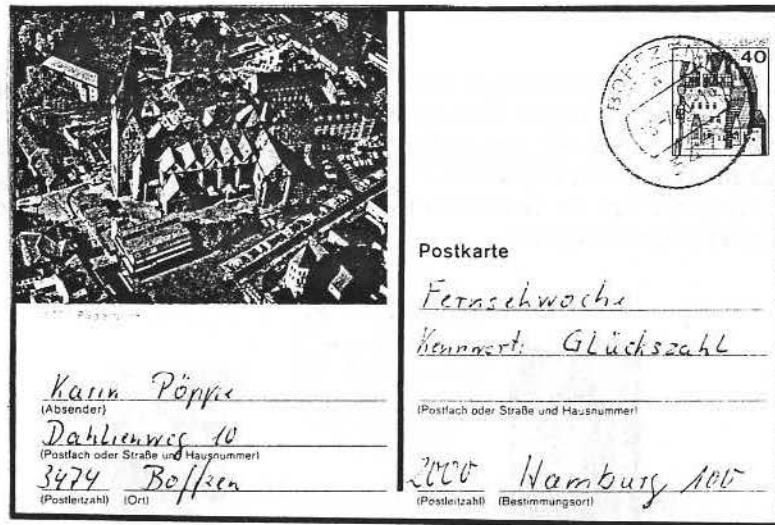 40
Postkarte
Fernsehwoche
Kennwort: Glückszahl
(Postfach oder Straße und Hausnummer)
2000 Hamburg 100
(Postleitzahl) (Bestimmungsort)
Paderborn
Karin Pöppe
(Absender)
Dahlienweg 10
(Postfach oder Straße und Hausnummer)
3474 Boffzen
(Postleitzahl) (Ort)